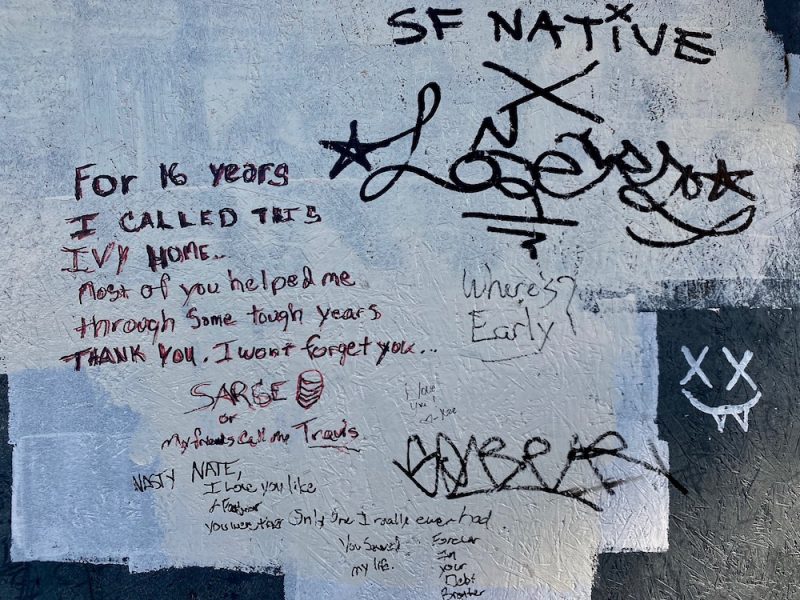 SF NATIVE
For 16 years
I CALLED THIS
IVY HOME..
Most of you helped me
through Some tough years
THANK YOU. I wont forget you...
Where's?
Early
SARGE
or
My friends call me Travis
I love
you!
NASTY NATE,
I Love you like
You were the Only One I really ever had.
You Saved
my life.
Forever
In
your
Debt
Brother